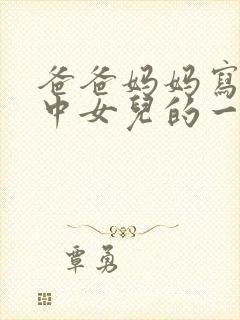 爸爸妈妈寫
中女兒的一
覃勇